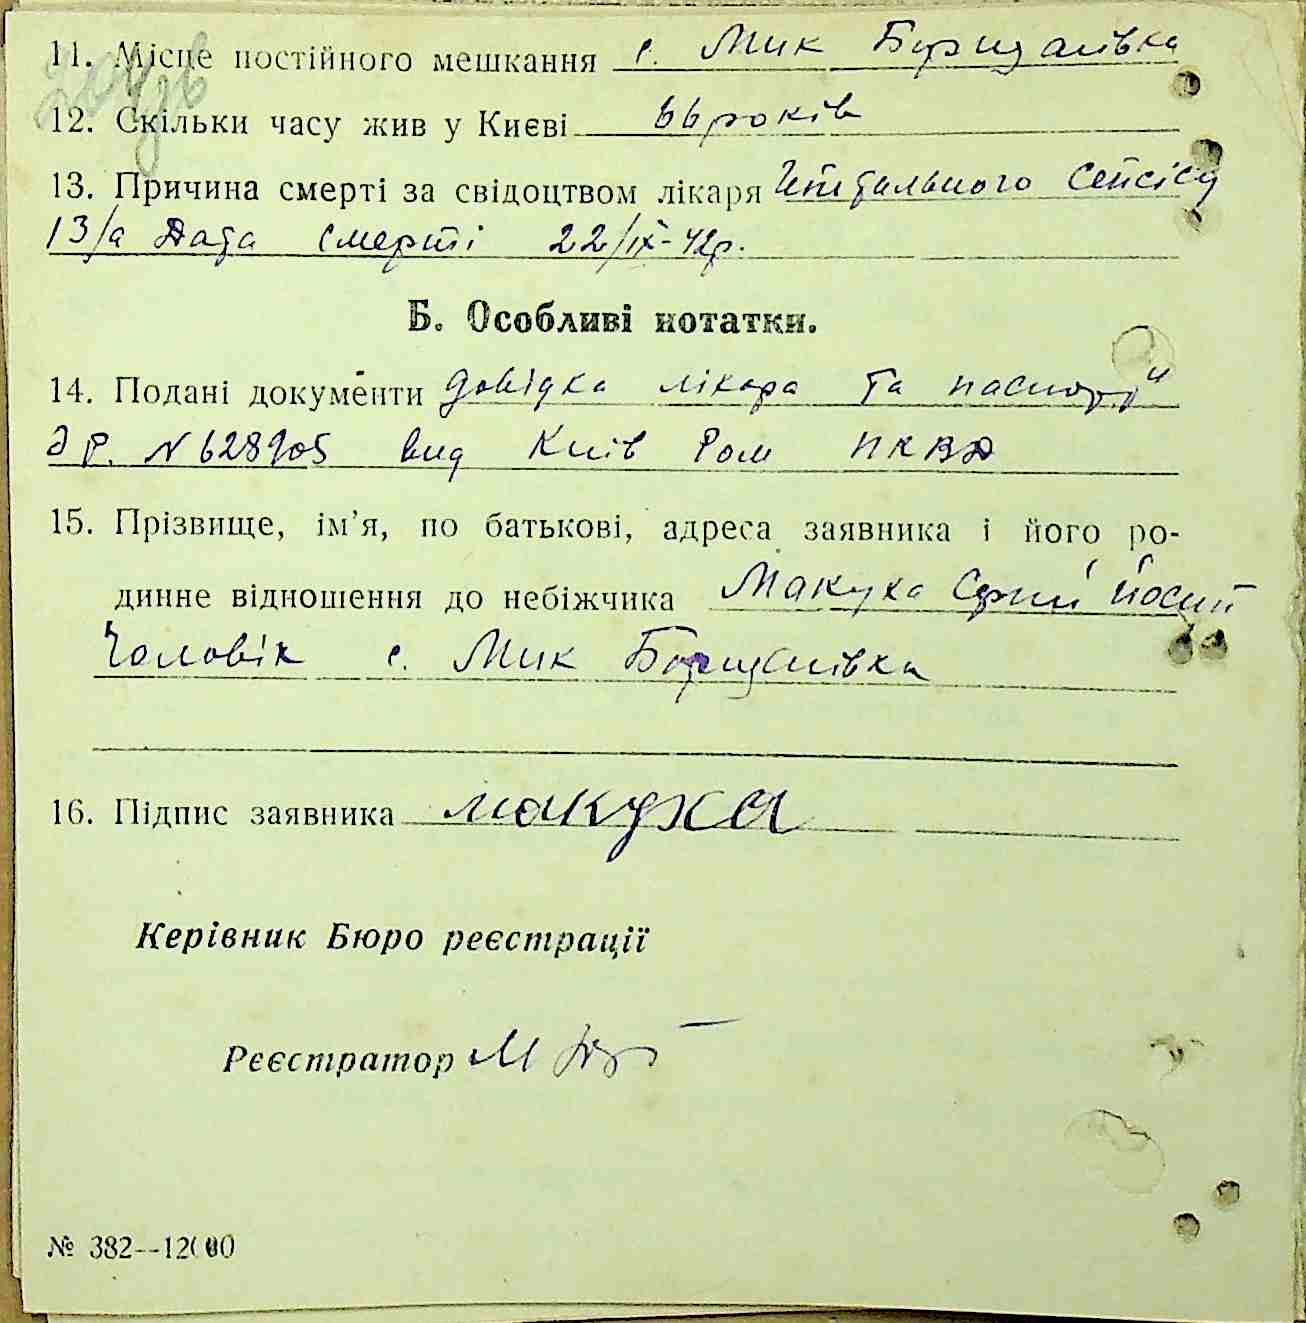 11. Місце постійного мешкання с. Мик Борщагівка
12. Скільки часу жив у Києві 66 років
13. Причина смерті за свідоцтвом лікаря сепсісу
13/а Дата смерті 22/ІХ-42р.
Б. Особливі нотатки.
14. Подані документи довідка лікара та паспорт
№ 628905 вид Київ Ром НКВД
15. Прізвище, ім’я, по батькові, адреса заявника і його ро-
динне відношення до небіжчика Макуха Йосип
Чоловік с. Мик Борщагівка
16. Підпис заявника Макуха
Керівник Бюро реєстрації
Реєстратор
№ 382--12000